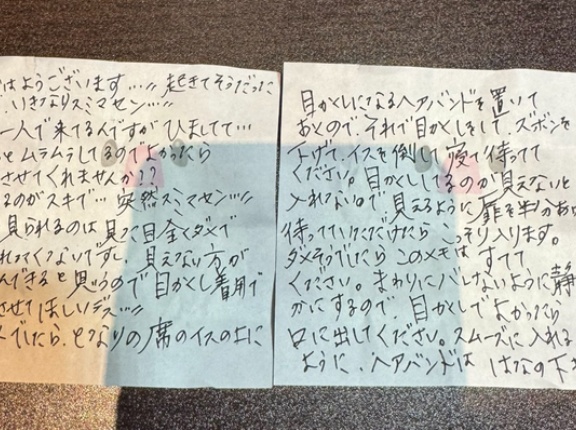 はようございます…!! 起きてそうだった
いきなりスミマセン…!!
一人で来てるんですが ひましてて…
とムラムラしてるのでよかったら
させてくれませんか??
るのがスキで… 突然スミマセン…!!
見られるのは 見て目全くダメで
れてくないですし、見えない方が
んできると思うので 目かくし着用で
させてほしいデス…!!
でしたら、となりの席のイスの上に
目かくしになるヘアバンドを置いて
おくので、それで目かくしをして、ズボンを
下げて、イスを倒して寝て待ってて
ください。目かくししてるのが見えないと
入れないので 見えるように扉を半分あけ
待っていただけたら こっそり入ります。
ダメそうでしたら このメモは すてて
ください。まわりにバレないように静
かにするので、目かくしでよかったら
口に出してください。スムーズに入れる
ように、ヘアバンドは はなの下